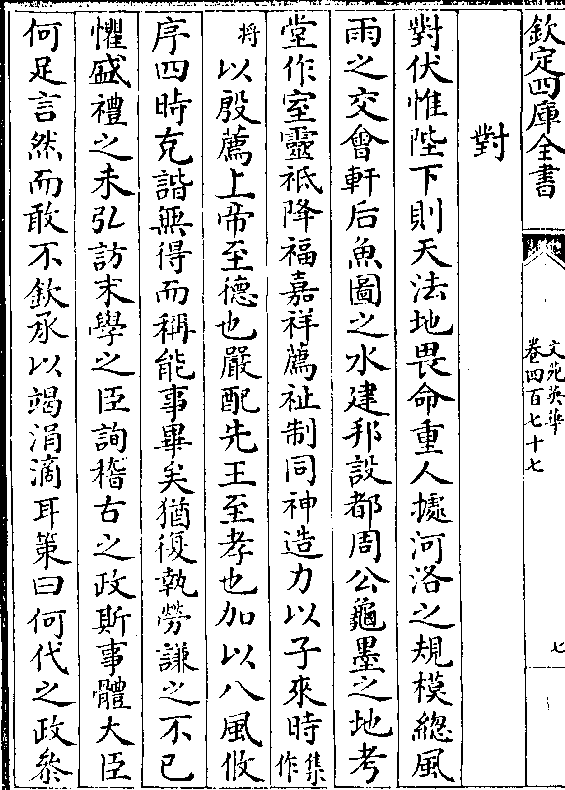 欽定四庫全書
文苑英華
卷四百七十七
七
對
對伏惟陛下則天法地畏命重人㩀河洛之規模總風
雨之交會軒后魚圖之水建邦設都周公龜墨之地考
堂作室靈祗降福嘉祥薦祉制同神造力以子來時集作
將以殷薦上帝至德也嚴配先王至孝也加以八風攸
序四時克諧無得而稱能事畢矣猶復執勞謙之不已
懼盛禮之未弘訪末學之臣詢稽古之政斯事體大臣
何足言然而敢不欽承以竭涓滴耳策曰何代之政叅